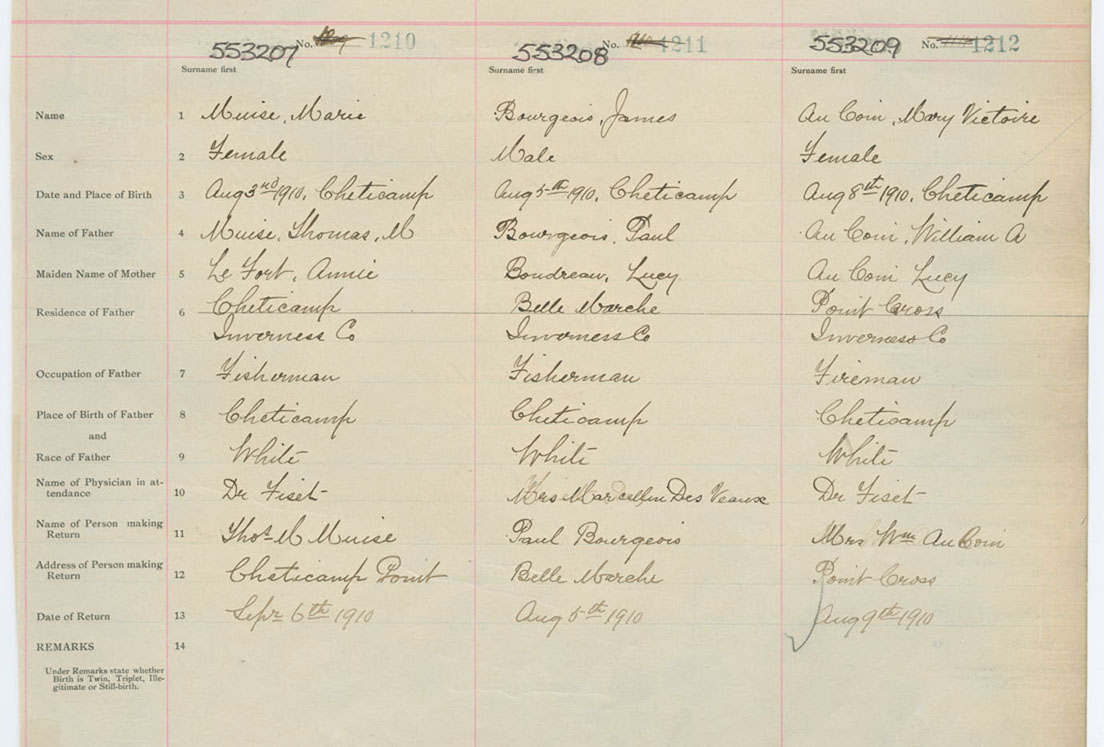 553207 No. 1210 553208 No. 1211 553209 No. 1212
Surname first Surname first Surname first
Name 1 Muise, Marie Bourgeois, James Au Coin, Mary Victoire
Sex 2 Female Male Female
Date and Place of Birth 3 Aug 3rd 1910, Cheticamp Aug 5th 1910, Cheticamp Aug 8th 1910, Cheticamp
Name of Father 4 Muise, Thomas, M Bourgeois, Paul Au Coin, William A
Maiden Name of Mother 5 Le Fort, Annie Boudreau, Lucy Au Coin Lucy
Residence of Father 6 Cheticamp Belle Marche Point Cross
Inverness Co Inverness Co Inverness Co
Occupation of Father 7 Fisherman Fisherman Fireman
Place of Birth of Father 8 Cheticamp Cheticamp Cheticamp
and
Race of Father 9 White White White
Name of Physician in at-
tendance 10 Dr Fiset Mrs Marcellin Des Veaux Dr Fiset
Name of Person making
Return 11 Thos M Muise Paul Bourgeois Mrs Wm Au Coin
Address of Person making
Return 12 Cheticamp Point Belle Marche Point Cross
Date of Return 13 Sepr 6th 1910 Aug 5th 1910 Aug 9th 1910
REMARKS 14
Under Remarks state whether
Birth is Twin, Triplet, Ille-
gitimate or Still-birth.